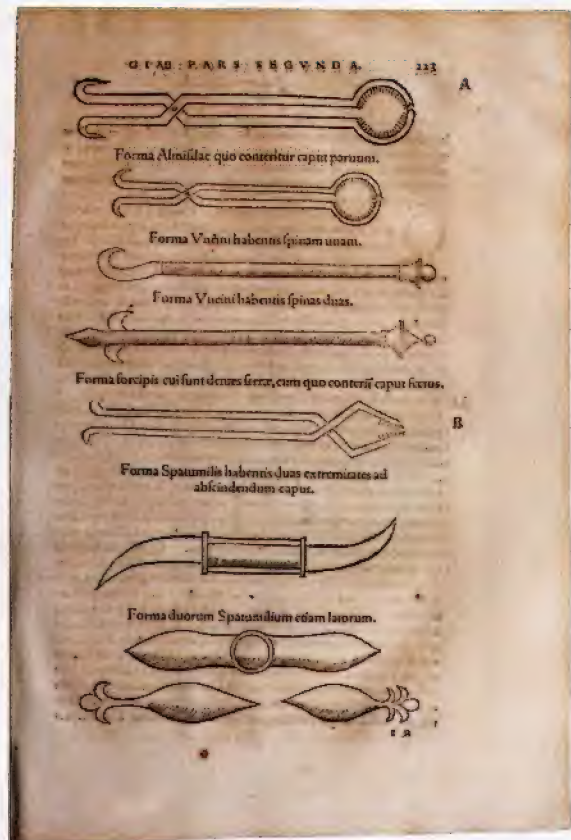 PARS SEGVNDA. 223
A
Forma Almisdac quo conteritur caput paruum.
Forma Vncini habentis spinam unam.
Forma Vncini habentis spinas duas.
Forma forcipis cui sunt dentes serræ, cum quo conterit caput fœtus.
B
Forma Spatumilis habentis duas extremitates ad
abscindendum caput.
Forma duorum Spatumilium etiam latorum.